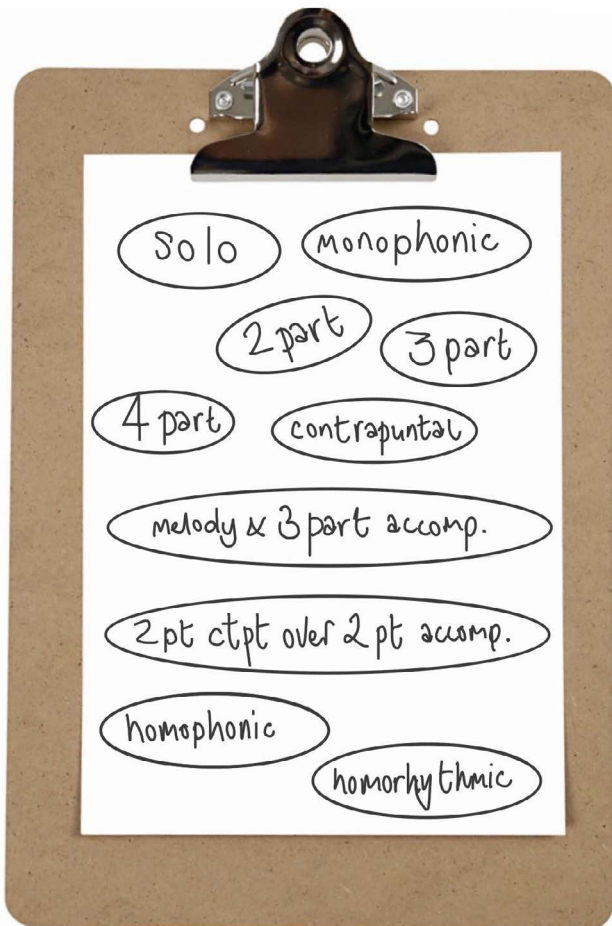 solo
monophonic
2 part
3 part
4 part
contrapuntal
melody & 3 part accomp.
2 pt ctpt over 2 pt accomp.
homophonic
homorhythmic